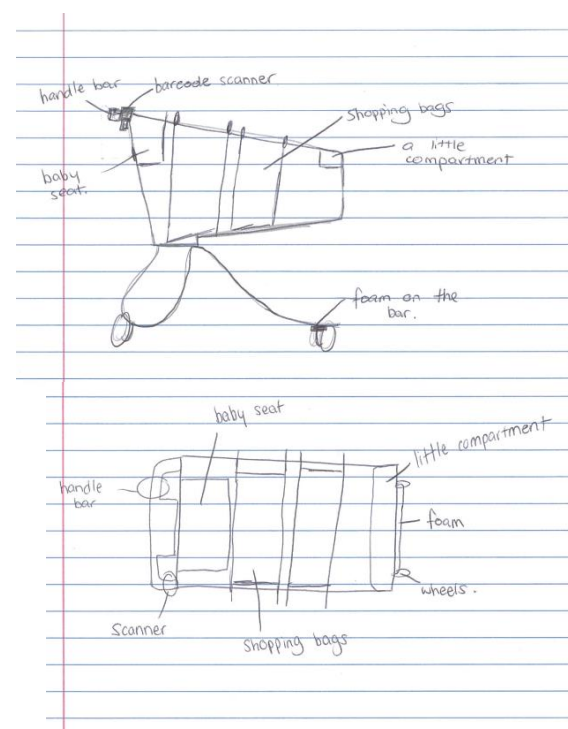 handle bar
barcode scanner
Shopping bags
a little
compartment
baby
seat.
foam on the
bar.
baby seat
little compartment
handle
bar
foam
wheels.
Scanner
Shopping bags